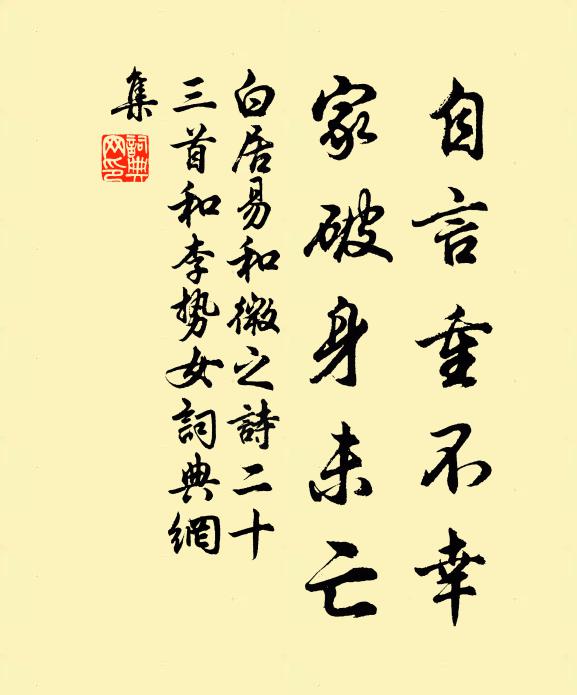 自言重不幸
家破身未亡
白居易和微之詩二十
三首和李势女詞典網
集
詞典網印